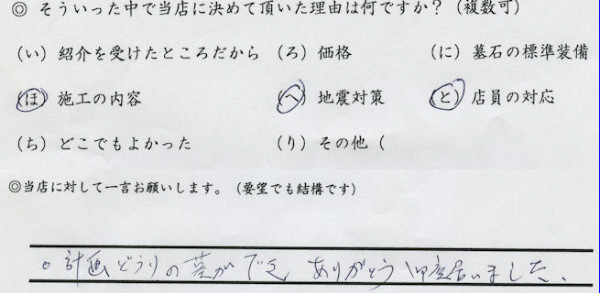 ◎ そういった中で当店に決めて頂いた理由は何ですか？（複数可）
（い）紹介を受けたところだから （ろ）価格 （に）墓石の標準装備
（ほ）施工の内容 （へ）地震対策 （と）店員の対応
（ち）どこでもよかった （り）その他（
◎当店に対して一言お願いします。（要望でも結構です）
○計画どうりの墓ができ ありがとう御座居ました、